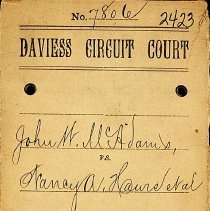 No. 7806 2423
DAVIESS CIRCUIT COURT
John W. McAdams,
VS.
Nancy A. Hawes et al